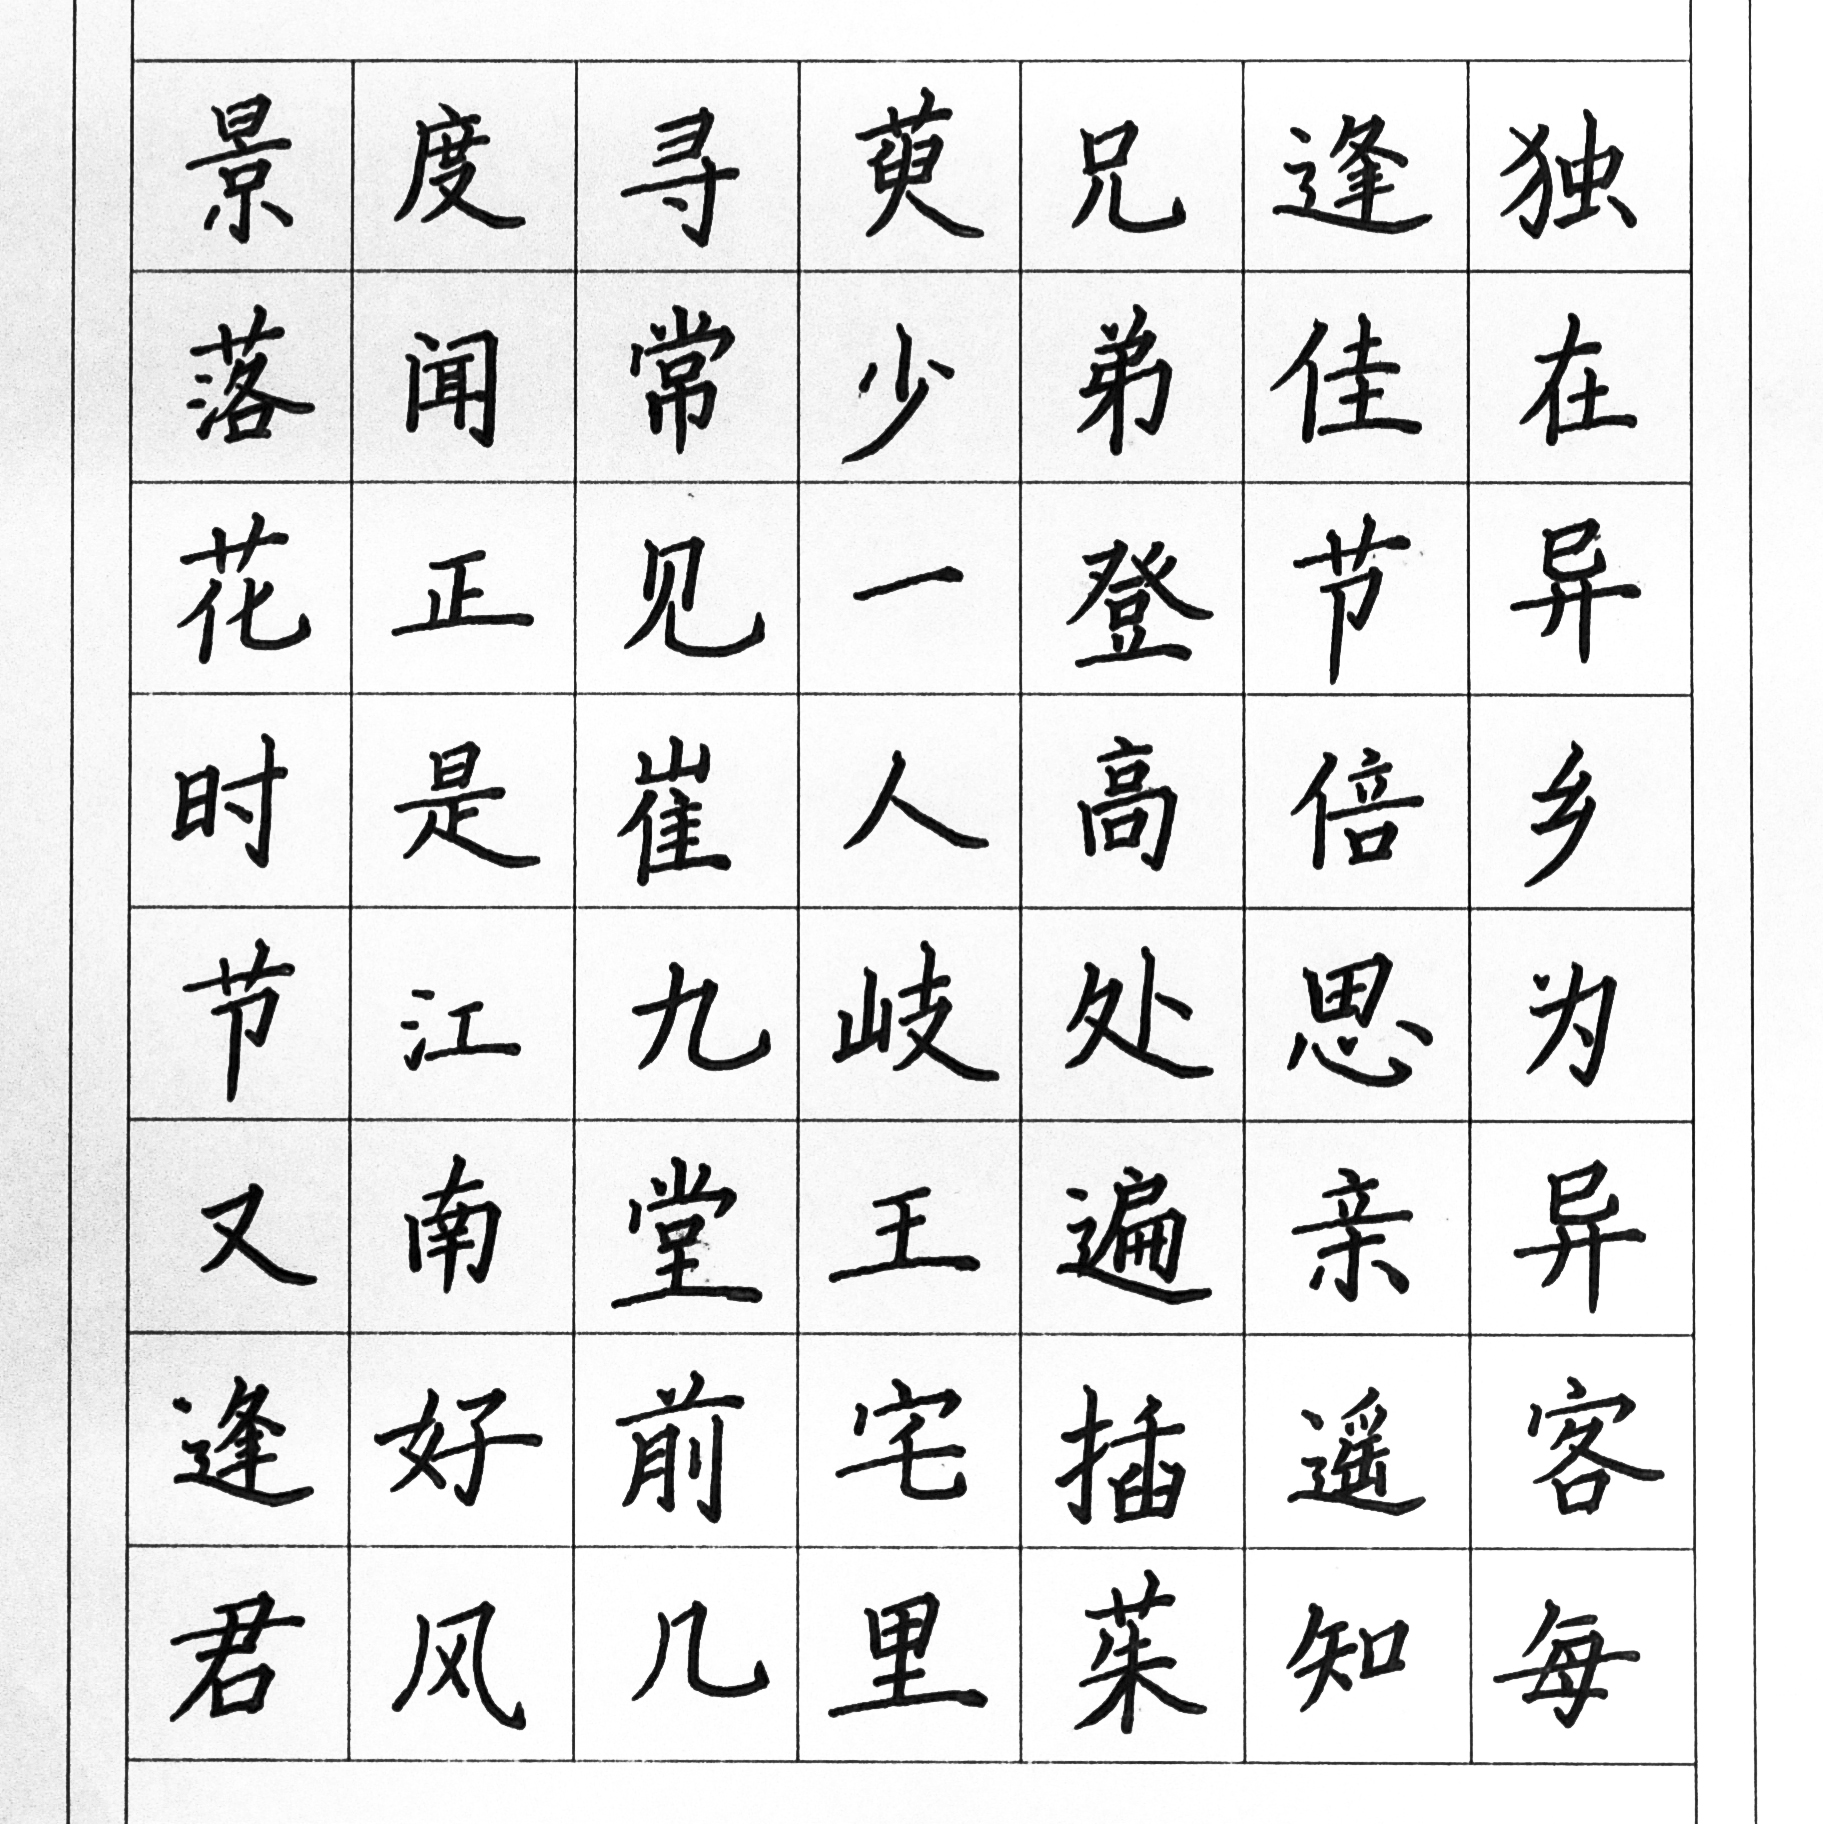 独在异乡为异客每
逢佳节倍思亲遥知
兄弟登高处遍插茱
萸少一人岐王宅里
寻常见崔九堂前几
度闻正是江南好风
景落花时节又逢君